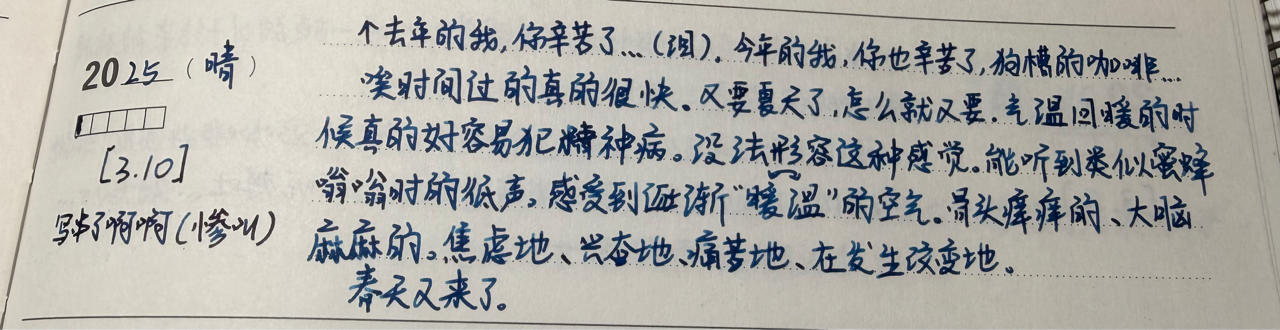 2025（晴）
[3.10]
写串了啊啊（惨叫）
个去年的我，你辛苦了…（泪）。今年的我，你也辛苦了，狗槽的咖啡…
唉时间过的真的很快。又要夏天了，怎么就又要。气温回暖的时
候真的好容易犯精神病。没法形容这种感觉。能听到类似蜜蜂
嗡嗡时的低声。感受到逐渐“暖温”的空气。骨头痒痒的、大脑
麻麻的。焦虑地、兴奋地、痛苦地、在发生改变地。
春天又来了。